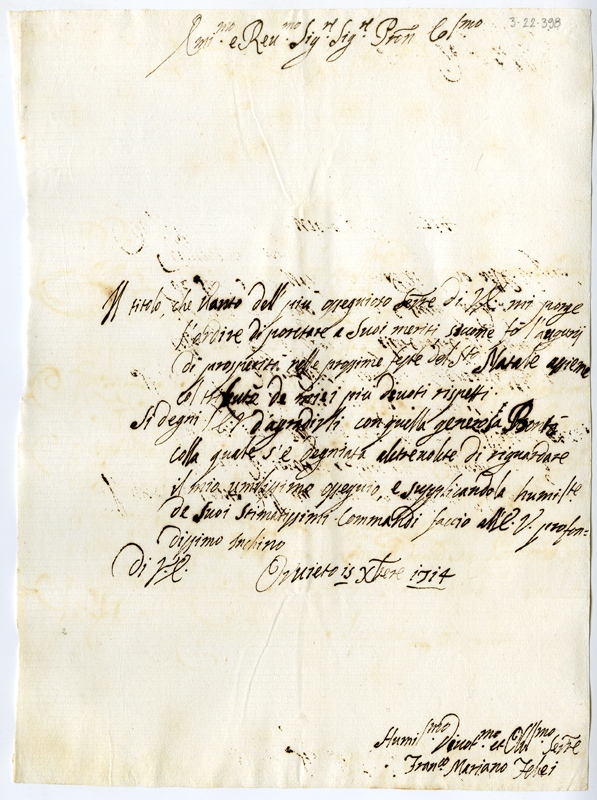 3-22-398
e Reu.mo Sig.r Sig.r Prõn Col.mo
Il titolo, che vanto dell' più ossequioso Serure di V.E. mi porge
l'ardire di portare a Suoi meriti siccome fò l'augurij
di prosperità nelle prossime feste del S.te Natale assieme
col de miei più deuoti rispetti.
Si degni l'E.V. d'agradirli con quella generosa Bontà
colla quale s'è degniata altreuolte di riguardare
il mio umilissimo ossequio, e supplicandola humil.te
de Suoi Stimatissimi Commandi faccio all'E.V. profon=
dissimo Inchino
Di V.E. Oruieto 15 Xbre 1714
Humil.mo Diuot.mo et Obl.mo Serure
Fran.co Mariano Febei